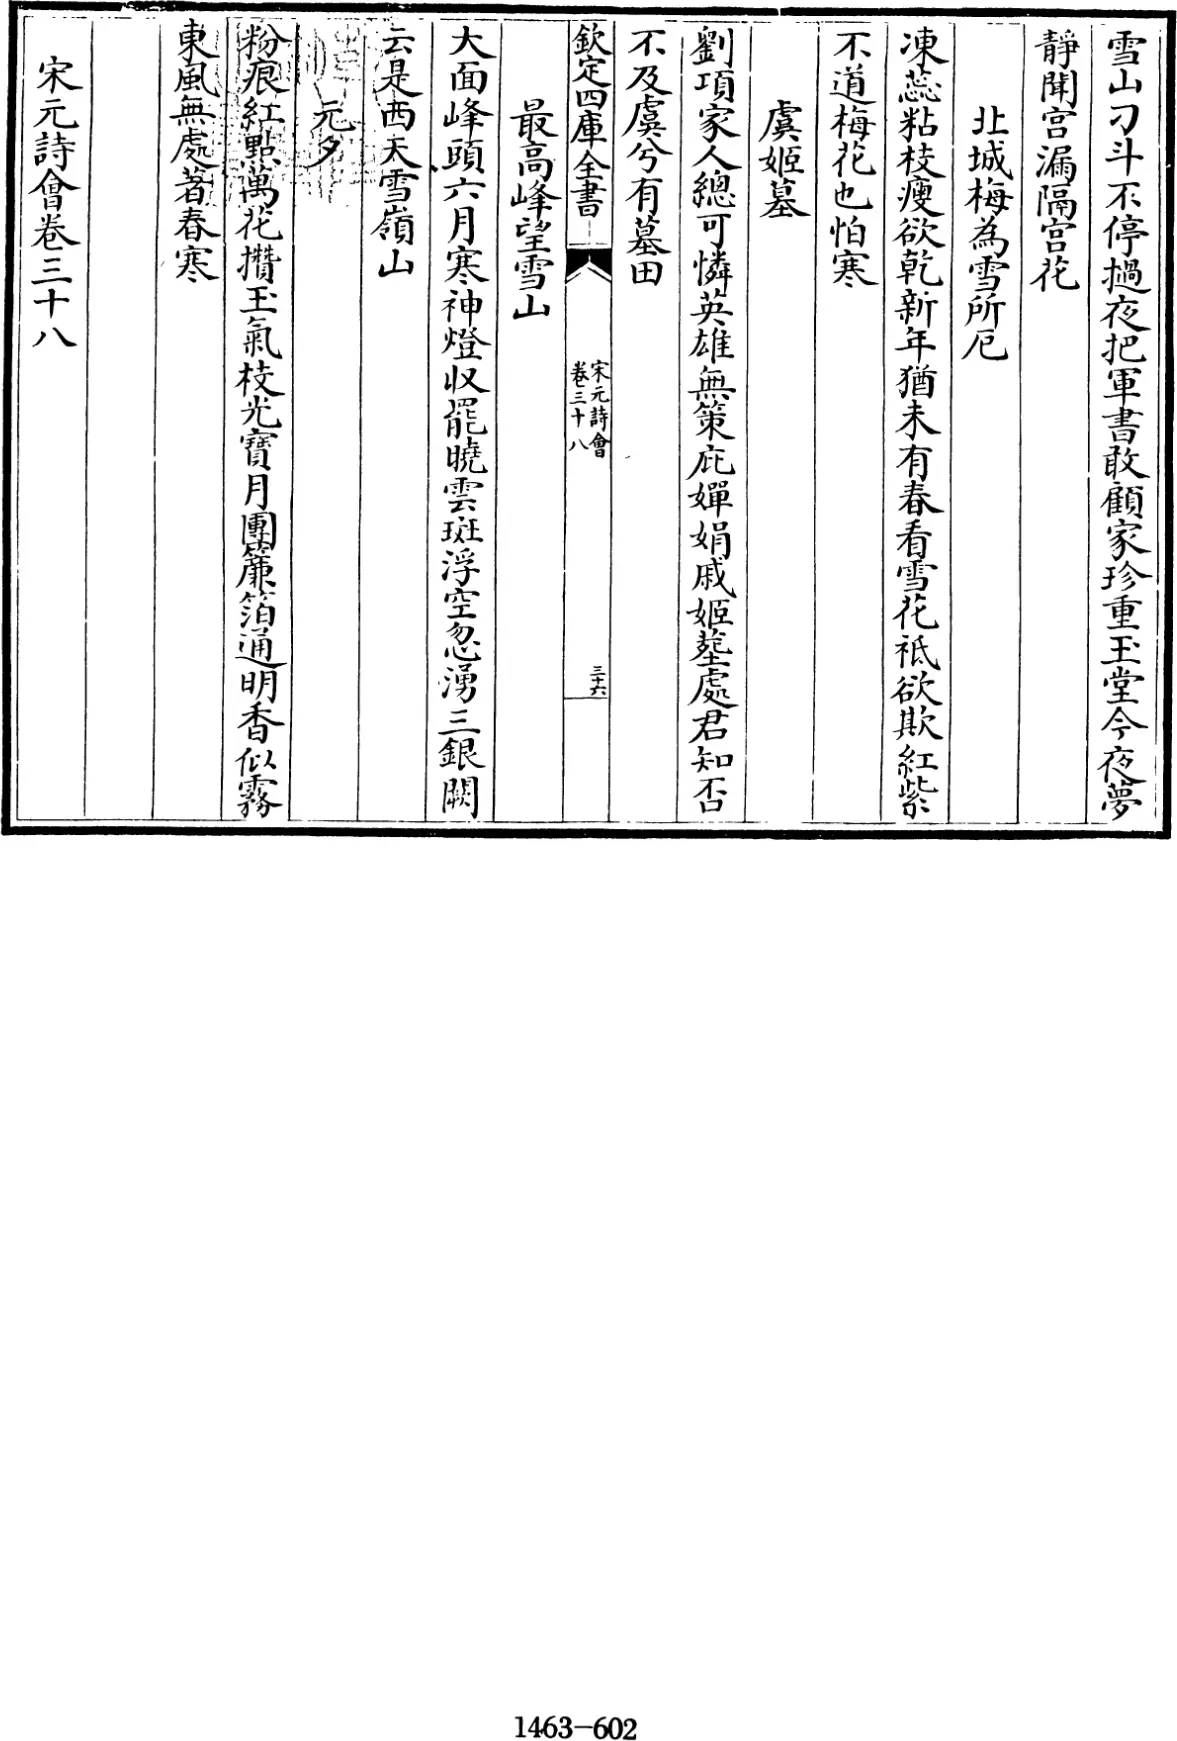 雪山刁斗不停撾夜把軍書敢顧家珍重玉堂今夜夢
靜聞宫漏隔宫花
北城梅為雪所厄
凍蕊粘枝瘦欲乾新年猶未有春看雪花祗欲欺紅紫
不道梅花也怕寒
虞姬墓
劉項家人總可憐英雄無策庇嬋娟戚姬塟處君知否
不及虞兮有墓田
欽定四庫全書
宋元詩會
卷三十八
三十六
最高峰望雪山
大面峰頭六月寒神燈収罷曉雲斑浮空忽湧三銀闕
云是西天雪嶺山
元夕
粉痕紅點萬花攢玉氣枝光寳月團簾箔通明香似霧
東風無處著春寒
宋元詩會卷三十八
1463-602